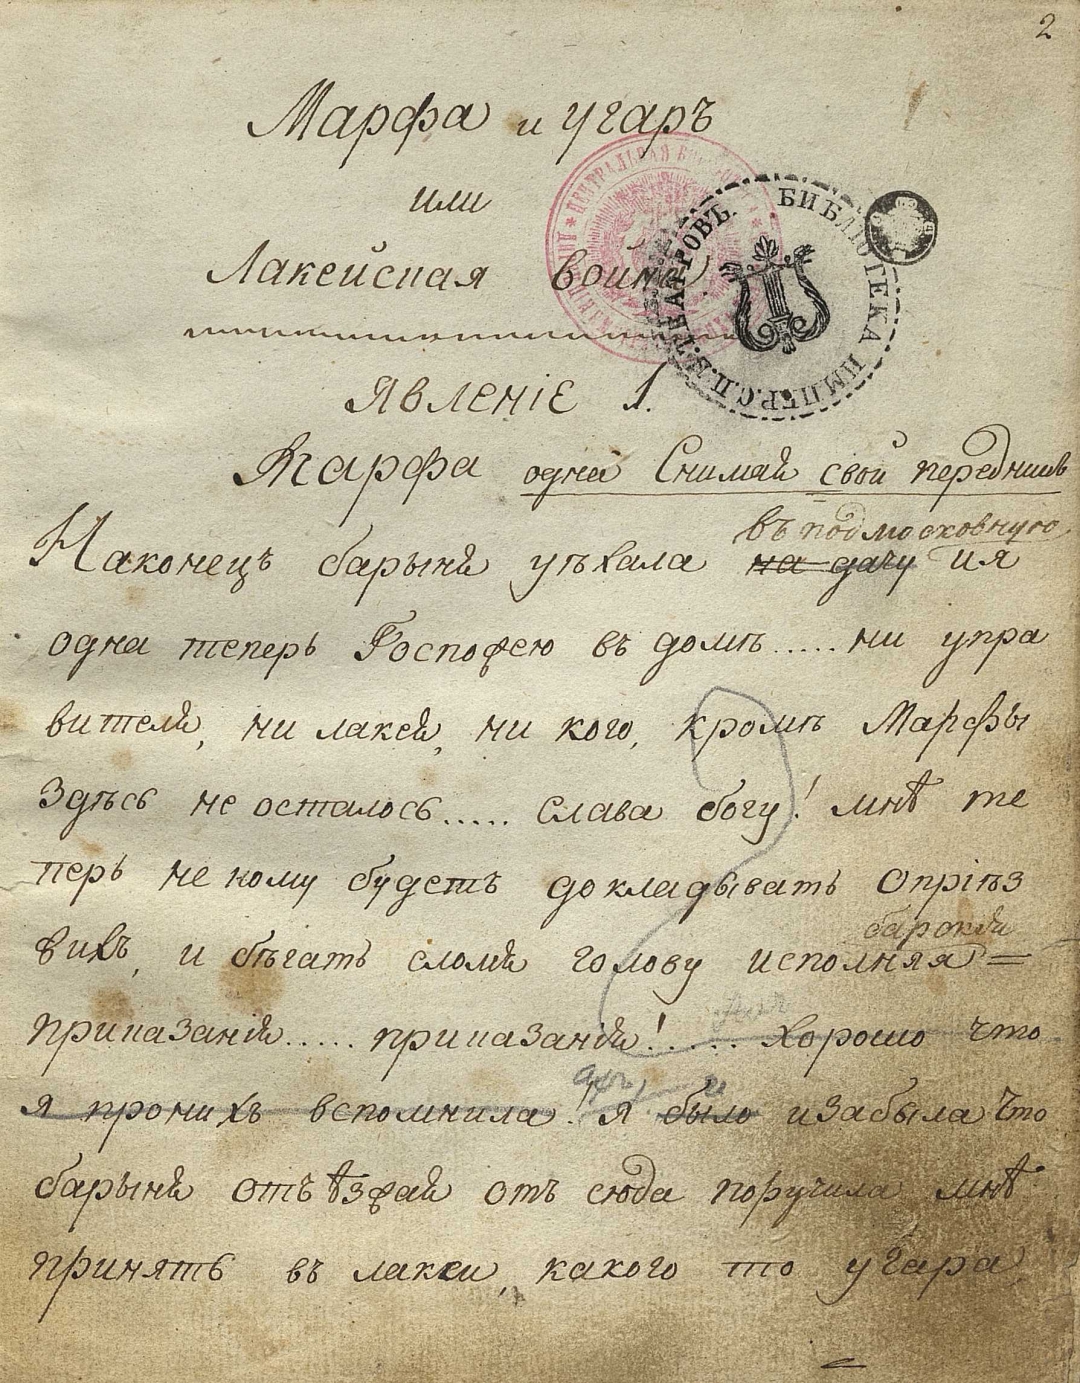 2
Марфа и угаръ
или
Лакейская война
ЦЕНТРАЛЬНАЯ
БИБЛІОТЕКА ИМПЕР. С.П.Б. ТЕАТРОВЪ.
Явленіе 1.
Марфа одна Снимая свой передникъ
въ подмосковную
Наконецъ барыня уѣхала на дачу и я
одна теперь Госпожею въ домѣ..... ни упра
вителя, ни лакея, ни кого, кромѣ Марфы
Здѣсь не осталось..... слава богу! мнѣ те
перь не кому будетъ докладывать опріѣз
жихъ, и бѣгать сломя голову исполняя =
барскія
приказанія..... приказанія!..... Хорошо что
я пронихъ вспомнила! Я было изабыла что
барыня отъѣзжая отъ сюда поручила мнѣ
принять въ лакеи, какого то угара